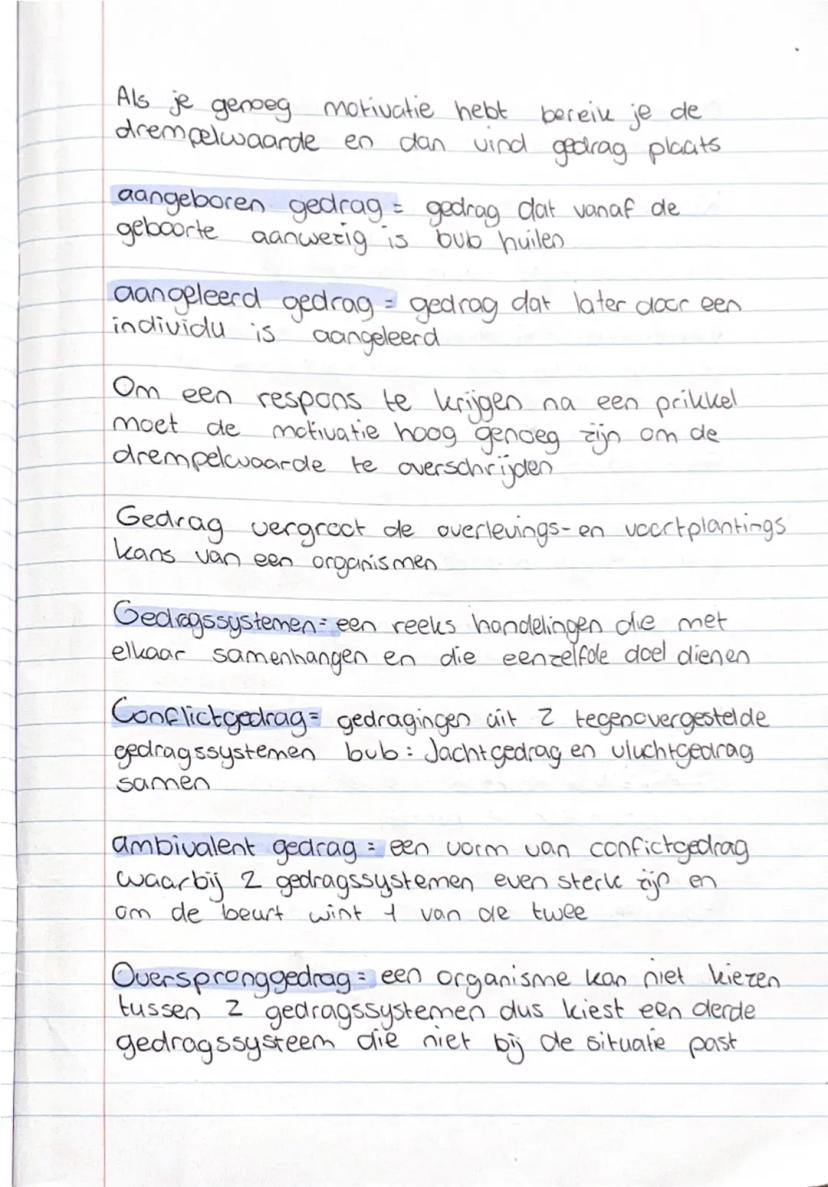 Als je genoeg motivatie hebt bereik je de
drempelwaarde en dan vind gedrag plaats
aangeboren gedrag = gedrag dat vanaf de
geboorte aanwezig is bvb huilen
aangeleerd gedrag = gedrag dat later door een
individu is aangeleerd
Om een respons te krijgen na een prikkel
moet de motivatie hoog genoeg zijn om de
drempelwaarde te overschrijden
Gedrag vergroot de overlevings- en voortplantings
kans van een organismen
Gedragssystemen = een reeks handelingen die met
elkaar samenhangen en die eenzelfde doel dienen
Conflictgedrag = gedragingen uit 2 tegenovergestelde
gedragssystemen bvb : Jachtgedrag en vluchtgedrag
samen
ambivalent gedrag = een vorm van confictgedrag
waarbij 2 gedragssystemen even sterk zijn en
om de beurt wint 1 van de twee
Overspronggedrag = een organisme kan niet kiezen
tussen 2 gedragssystemen dus kiest een derde
gedragssysteem die niet bij de situatie past